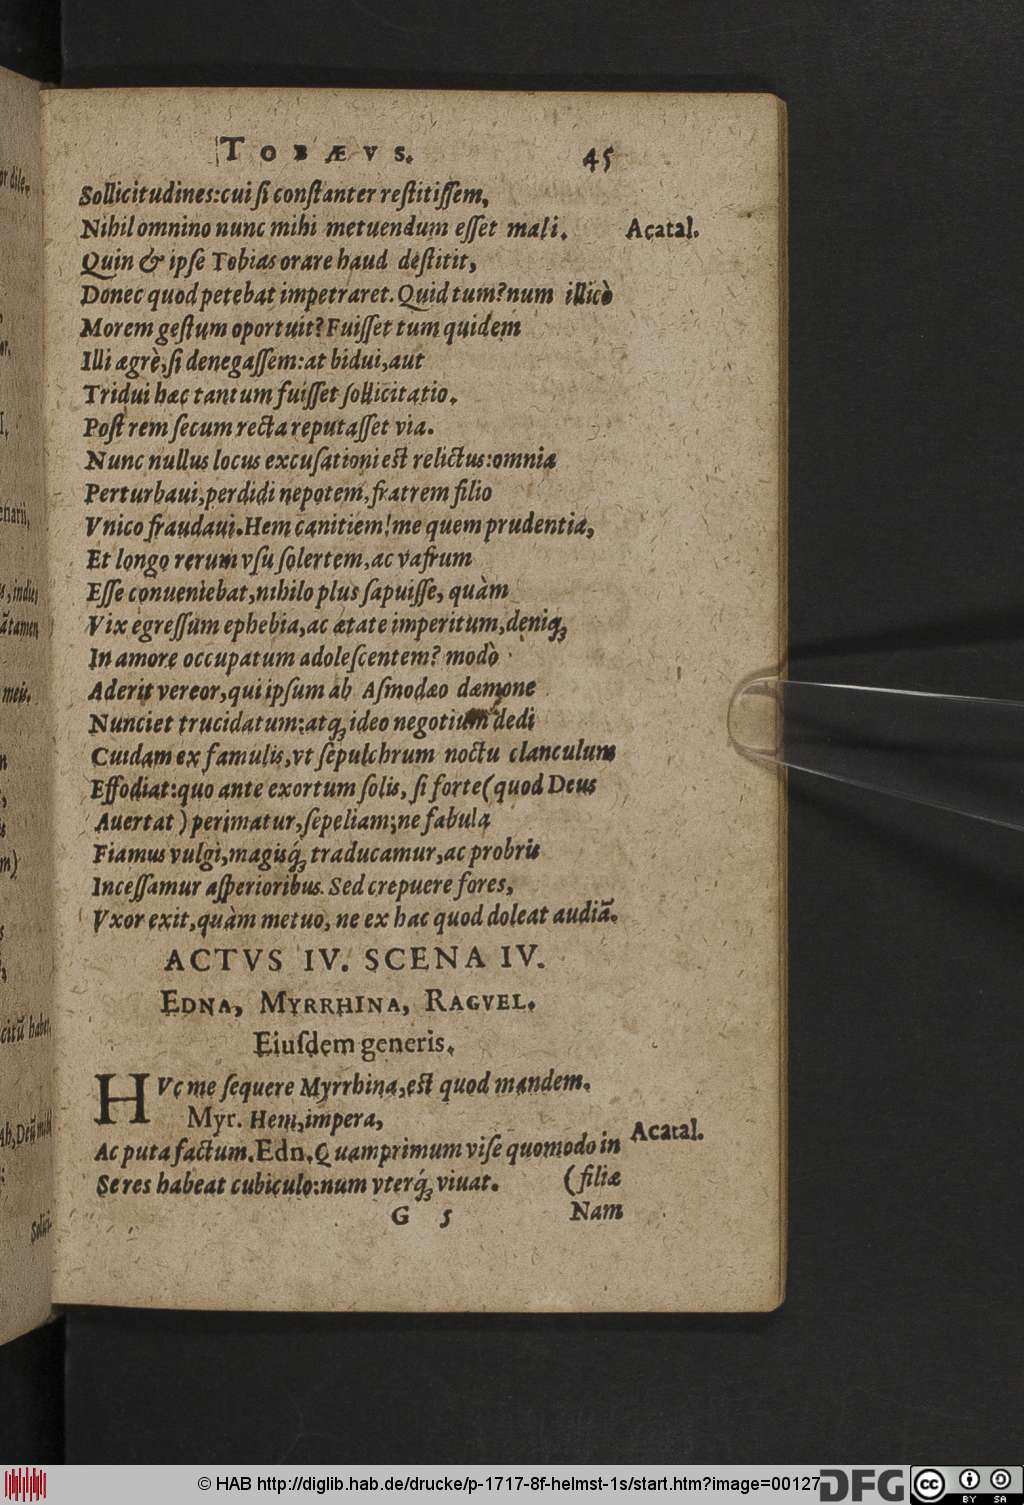 TOBÆVS. 45
Sollicitudines:cui ſi conſtanter reſtitiſſem,
Nihil omnino nunc mihi metuendum eſſet mali. Acatal.
Quin & ipſe Tobias orare haud deſtitit,
Donec quod petebat impetraret. Quid tum?num illicò
Morem geſtum oportuit? Fuiſſet tum quidem
Illi ægrè,ſi denegaſſem:at bidui,aut
Tridui hæc tantum fuiſſet ſollicitatio.
Poſt rem ſecum recta reputaſſet via.
Nunc nullus locus excuſationi eſt relictus:omnia
Perturbaui,perdidi nepotem,fratrem filio
Vnico fraudaui.Hem canitiem!me quem prudentia,
Et longo rerum vſu ſolertem,ac vafrum
Eſſe conueniebat,nihilo plus ſapuiſſe, quàm
Vix egreſſum ephebia,ac ætate imperitum,deniq́;
In amore occupatum adoleſcentem? modò
Aderit vereor,qui ipſum ab Aſmodæo dæmone
Nunciet trucidatum:atq́; ideo negotium dedi
Cuidam ex famulis,vt ſepulchrum noctu clanculum
Effodiat:quo ante exortum ſolis, ſi forte(quod Deus
Auertat)perimatur,ſepeliam;ne fabula
Fiamus vulgi,magisq́; traducamur,ac probris
Inceſſamur aſperioribus. Sed crepuere fores,
Vxor exit,quàm metuo, ne ex hac quod doleat audiā.
ACTVS IV. SCENA IV.
EDNA, MYRRHINA, RAGVEL.
Eiuſdem generis.
HVc me ſequere Myrrhina,eſt quod mandem.
Myr. Hem,impera,
Ac puta factum.Edn.Quamprimum viſe quomodo in Acatal.
Se res habeat cubiculo:num vterq́; viuat. (filiæ
G 5 Nam
© HAB http://diglib.hab.de/drucke/p-1717-8f-helmst-1s/start.htm?image=00127
DFG
cc BY SA